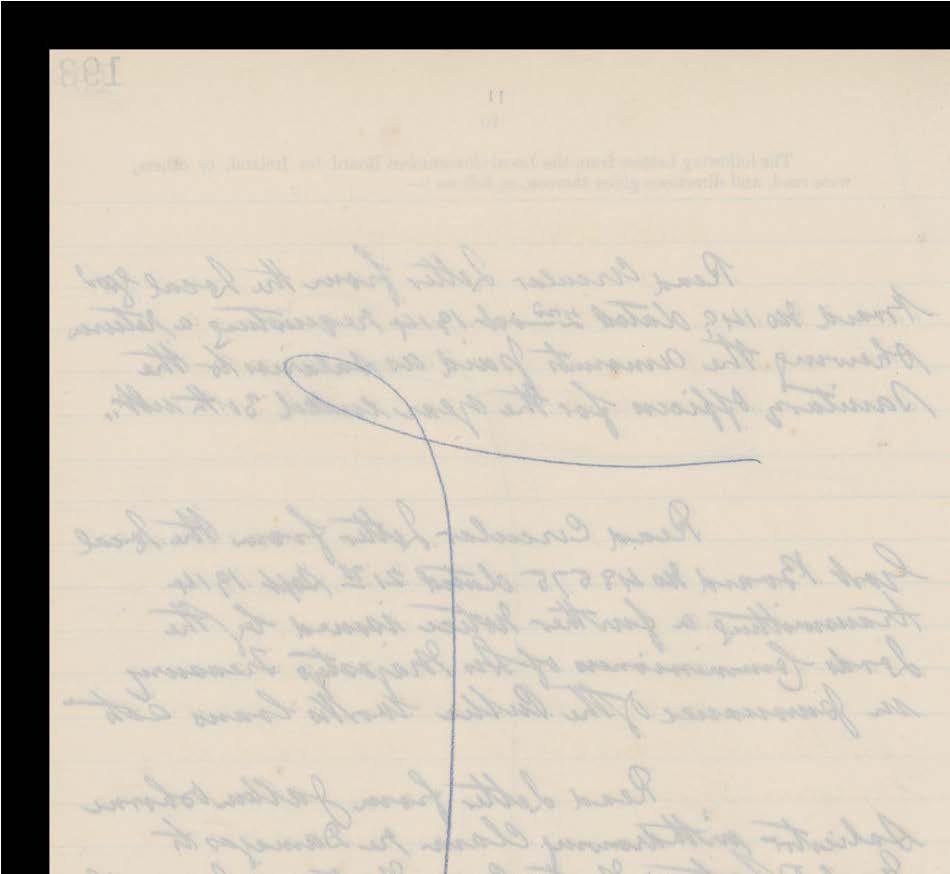 193
11
10
The following Letters from the Local Government Board for Ireland, or others,
were read, and directions given thereon, as follows :—
Read Circular Letter from the Local Gov
Board No 149 dated 2nd Oct 1914 requesting a return
showing the amounts paid as Salaries to the
Sanitary Officers for the year ended 30th ulto.
Read Circular Letter from the Local
Govt Board No 49575 dated 21st Sept 1914
transmitting a further notice issued by the
Lords Commissioners of His Majestys Treasury
in pursuance of the Public Works Loans Act
Read Letter from
Solicitor withdrawing Claim re Damages to